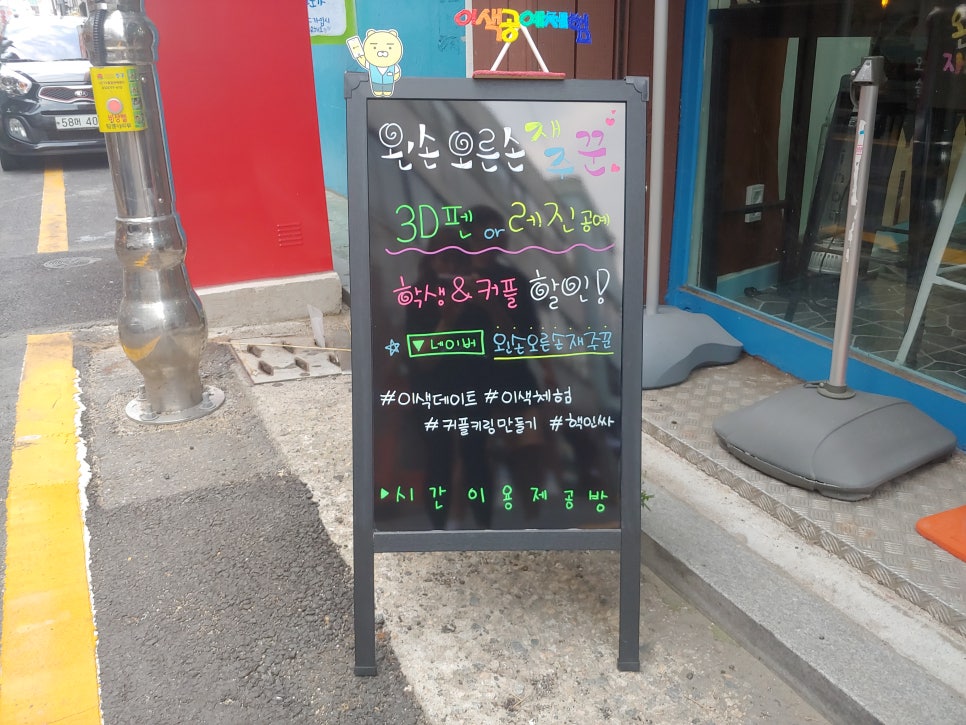 이색공예체험
왼손 오른손 재주꾼
3D펜 or 레진공예
학생 & 커플 할인!
☆ ▼네이버 왼손오른손재주꾼
#이색데이트 #이색체험
#커플키링만들기 #핵인싸
▶시간이용제공방
58머 40